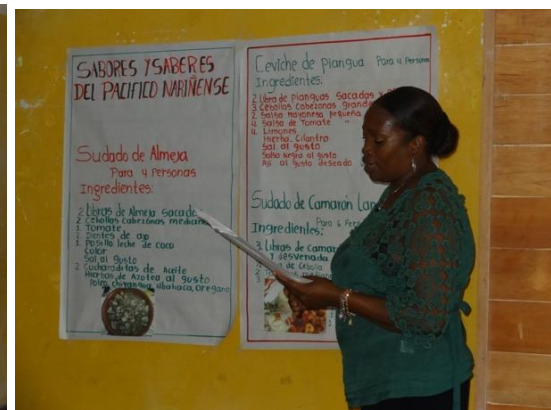 SABORES Y SABERES
DEL PACIFICO NARIÑENSE
Sudado de Almeja
Para 4 personas
Ingredientes:
2 Libras de Almeja sacada
2 Cebollas cabezonas mediana
1. Tomate
2. Dientes de ajo
1. Posillo leche de coco
Color
Sal al gusto
2 Cucharaditas de Aceite
Hierbas de Azotea al gusto
Poleo, chirangua, albahaca, Oregano
Ceviche de piangua Para 4 Persona
Ingredientes:
2 Libra de pianguas sacadas y
3 Cebollas Cabezonas grand
2 Salsa mayonesa pequeña
4 Salsa de Tomate
4. Limones
Hierba, Cilantro
Sal al gusto
Salsa negra al gusto
Aji al gusto deseado
Sudado de Camarón Lan
Para 6 Pers
Ingredientes:
3 Libras de Camar
y desvenada
de Cebolla